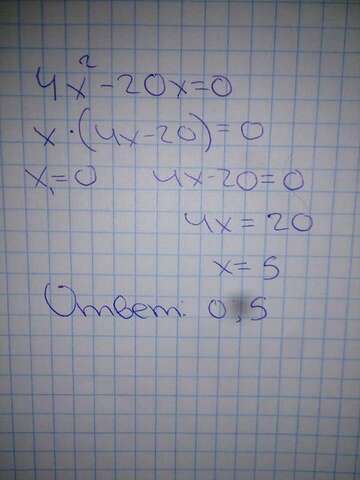 4x²-20x=0
x·(4x-20)=0
x₁=0 4x-20=0
4x=20
x=5
Ответ: 0,5